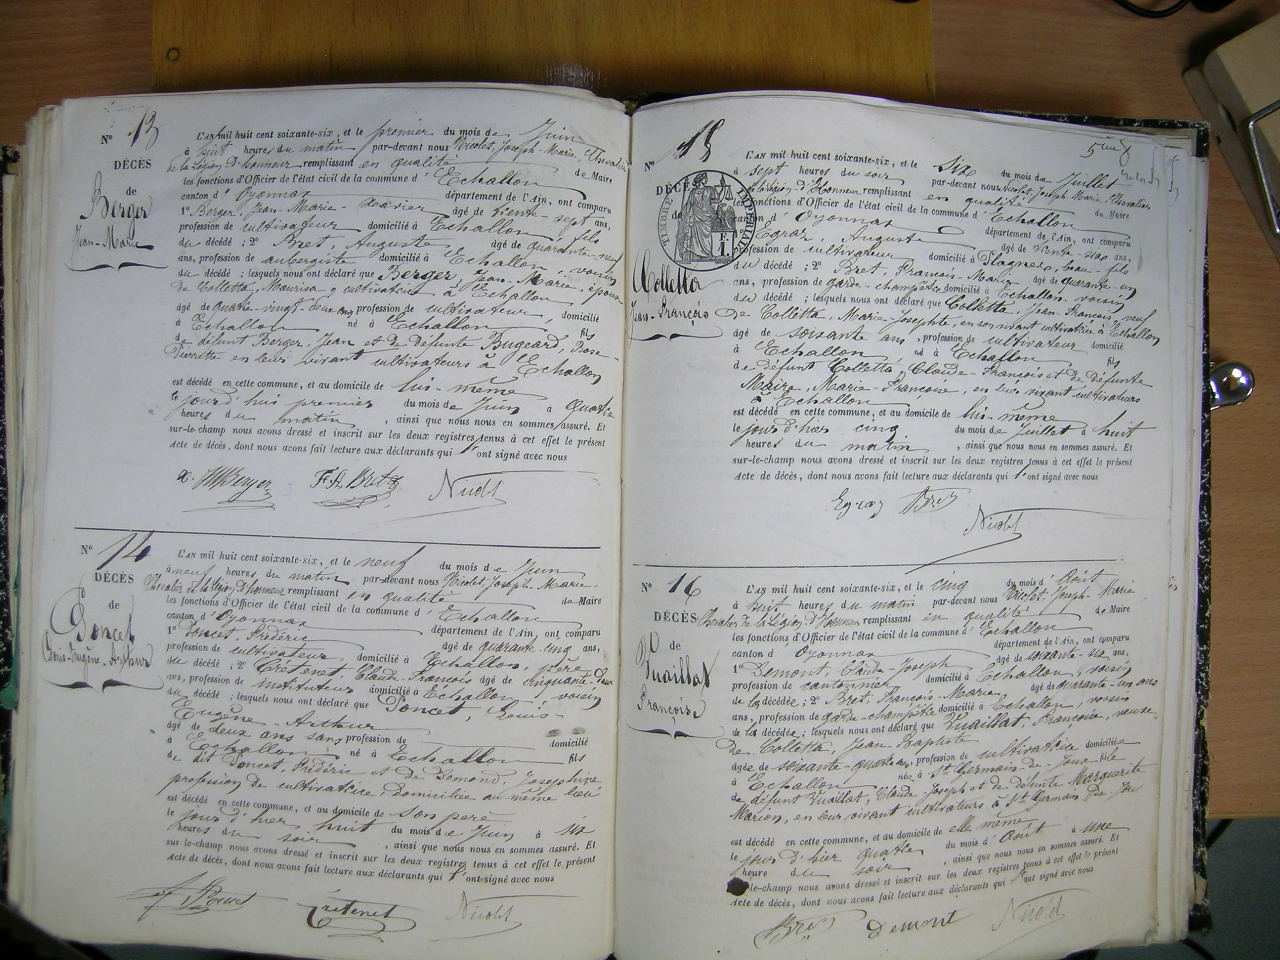 N° 13
DÉCÈS
de
Berger
Jean-Marie
L'AN mil huit cent soixante-six, et le premier du mois de Juin
à huit heures du matin par-devant nous Nicolet, Joseph-Marie, Chevalier
de la Légion d'honneur remplissant en qualité de Maire
les fonctions d'Officier de l'état civil de la commune d'Echallon
canton d'Oyonnax département de l'Ain, ont comparu
1° Berger, Jean-Marie-Xavier âgé de trente-sept ans,
profession de cultivateur domicilié à Echallon, fils
du décédé ; 2° Bret, Auguste âgé de quarante-neuf
ans, profession de aubergiste domicilié à Echallon, voisin
du décédé ; lesquels nous ont déclaré que Berger, Jean-Marie, époux
de Colletta, cultivateur à Echallon
âgé de quatre-vingt-deux ans profession de cultivateur, domicilié
à Echallon né à Echallon fils
de défunt Berger, Jean et de défunte Bugeard, Rose-
Perrette en leur vivant cultivateurs à Echallon
est décédé en cette commune, et au domicile de lui-même
le jour d'hui premier du mois de Juin à quatre
heures du matin, ainsi que nous nous en sommes assuré. Et
sur-le-champ nous avons dressé et inscrit sur les deux registres tenus à cet effet le présent
acte de décès, dont nous avons fait lecture aux déclarants qui l'ont signé avec nous
F. A. Bret Nicolet
N° 14
DÉCÈS
de
Poncet
Louis-Eugène-Arthur
L'AN mil huit cent soixante-six, et le neuf du mois de Juin
à neuf heures du matin par-devant nous Nicolet, Joseph-Marie
Chevalier de la Légion d'honneur remplissant en qualité de Maire
les fonctions d'Officier de l'état civil de la commune d'Echallon
canton d'Oyonnax département de l'Ain, ont comparu
1° Poncet, Frédéric âgé de quarante-cinq ans,
profession de cultivateur domicilié à Echallon, père
du décédé ; 2° Crétenet, Claude-François âgé de cinquante-deux
ans, profession de instituteur domicilié à Echallon, voisin
du décédé ; lesquels nous ont déclaré que Poncet, Louis-
Eugène-Arthur
âgé de deux ans sans profession de domicilié
à Echallon né à Echallon fils
de dit Poncet, Frédéric et de Demond, Josephine
profession de cultivatrice domiciliée au même lieu
est décédé en cette commune, et au domicile de son père
le jour d'hier huit du mois de Juin à six
heures du soir, ainsi que nous nous en sommes assuré. Et
sur-le-champ nous avons dressé et inscrit sur les deux registres tenus à cet effet le présent
acte de décès, dont nous avons fait lecture aux déclarants qui l'ont signé avec nous
Crétenet Nicolet
N° 15
DÉCÈS
de
TIMBRE IMPÉRIAL
Colletta
Jean-François
L'AN mil huit cent soixante-six, et le six du mois de Juillet
à sept heures du soir par-devant nous Nicolet, Joseph-Marie, Chevalier
de la Légion d'Honneur remplissant en qualité de Maire
les fonctions d'Officier de l'état civil de la commune d'Echallon
canton d'Oyonnax département de l'Ain, ont comparu
1° Egraz, Auguste âgé de trente-six ans,
profession de cultivateur domicilié à Plagnes, beau-fils
du décédé ; 2° Bret, François-Marie âgé de quarante-un
ans, profession de garde-champêtre domicilié à Echallon, voisin
du décédé ; lesquels nous ont déclaré que Colletta, Jean-François, veuf
de Colletta, Marie-Josephte, en son vivant cultivatrice à Echallon
âgé de soixante ans, profession de cultivateur domicilié
à Echallon né à Echallon fils
de défunt Colletta, Claude-François et de défunte
Maire, Marie-Françoise, en leur vivant cultivateurs
à Echallon
est décédé en cette commune, et au domicile de lui-même
le jour d'hier cinq du mois de Juillet à huit
heures du matin, ainsi que nous nous en sommes assuré. Et
sur-le-champ nous avons dressé et inscrit sur les deux registres tenus à cet effet le présent
acte de décès, dont nous avons fait lecture aux déclarants qui l'ont signé avec nous
Egraz Bret
Nicolet
N° 16
DÉCÈS
de
Vuaillat
Françoise
L'AN mil huit cent soixante-six, et le cinq du mois d'Août
à huit heures du matin par-devant nous Nicolet, Joseph-Marie
Chevalier de la Légion d'Honneur remplissant en qualité de Maire
les fonctions d'Officier de l'état civil de la commune d'Echallon
canton d'Oyonnax département de l'Ain, ont comparu
1° Demont, Claude-Joseph âgé de soixante-six ans,
profession de cantonnier domicilié à Echallon, voisin
de la décédée ; 2° Bret, François-Marie âgé de quarante-un ans
ans, profession de garde-champêtre domicilié à Echallon, voisin
de la décédée ; lesquels nous ont déclaré que Vuaillat, Françoise, veuve
de Colletta, Jean-Baptiste
âgée de soixante-quatre ans, profession de cultivatrice domiciliée
à Echallon née à St Germain-de-Joux fille
de défunt Vuaillat, Claude-Joseph et de défunte Marguerite
Marion, en leur vivant cultivateurs à St Germain de Joux
est décédé en cette commune, et au domicile de elle même
le jour d'hier quatre du mois d'Août à une
heure du soir, ainsi que nous nous en sommes assuré. Et
sur-le-champ nous avons dressé et inscrit sur les deux registres tenus à cet effet le présent
acte de décès, dont nous avons fait lecture aux déclarants qui l'ont signé avec nous
Bret Demont Nicolet